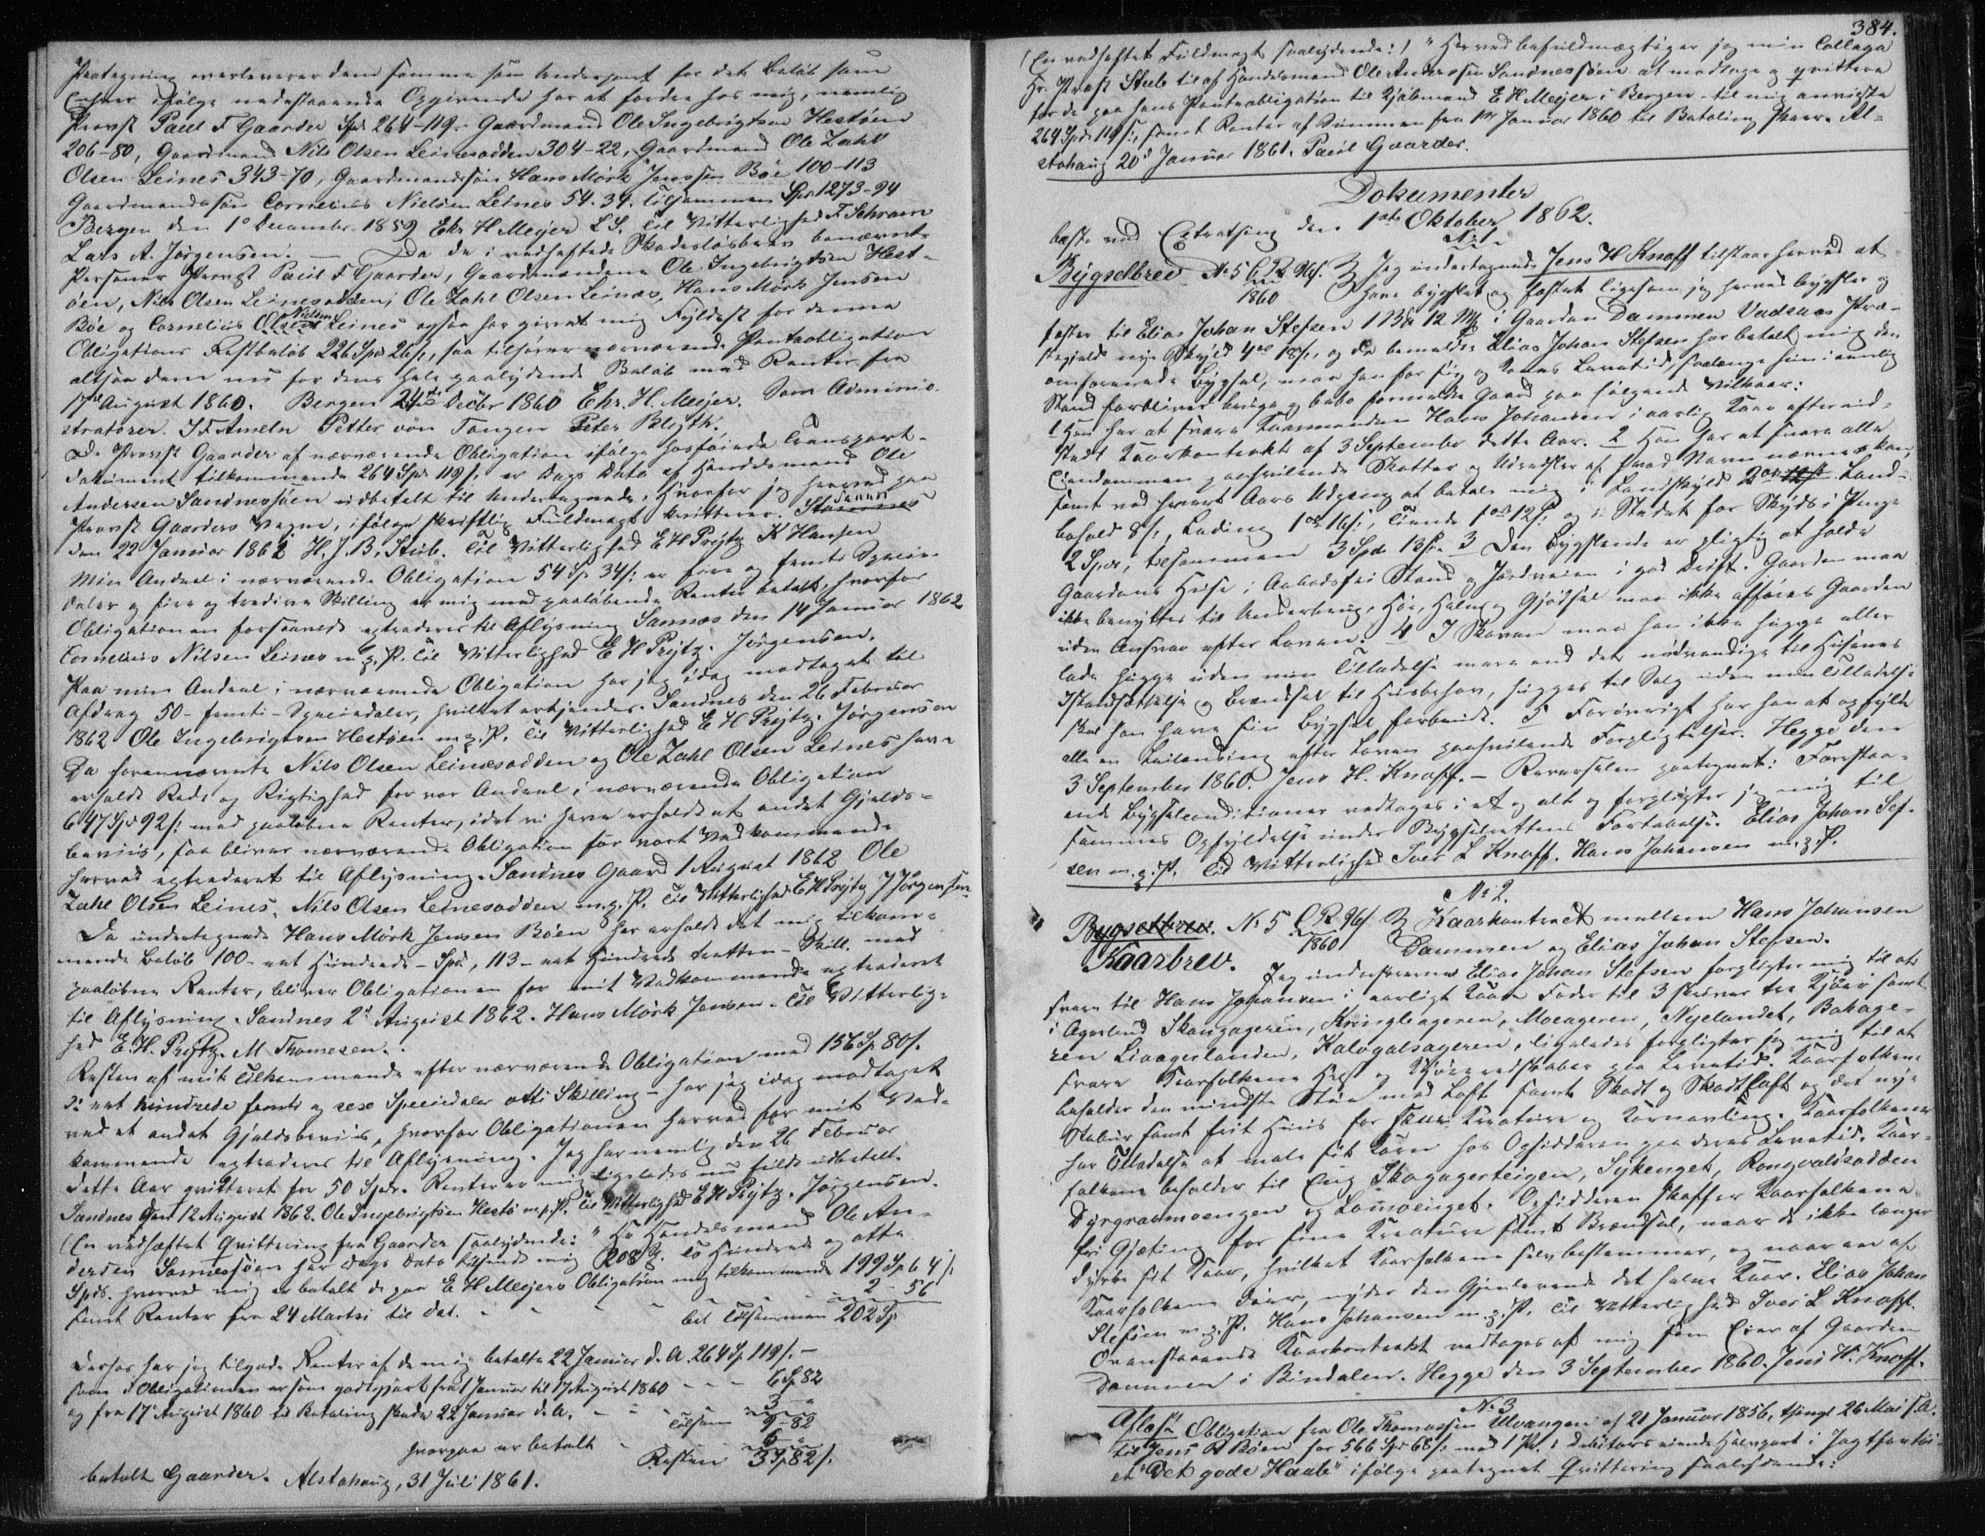 Paategning overleverer dem samme som Underpant for det Beløb som
Enhver ifølge nedenstaaende Opgivende har at fordre hos mig, nemlig
Provst Paul F Gaarder Spd 264-119. Gaardmand Ole Ingebrigtsen Hestøen
206-80, Gaardmand Nils Olsen Leinesodden 304-22, Gaardmand Ole Zahl
Olsen Leines 343-70, Gaardmandssøn Hans Mørk Jensen Bøe 100-113
Gaardmandssøn Cornelius Nielsen Leines 54. 34. tilsammen Spd 1273-94
Bergen den 1ste December 1859 Chr. H Meyer L.S. Til Vitterlighed F. Schram
Lars A. Jørgensen. — Da de i vedheftede Skadesløsbrev benævnte
Personer Provst Paul F Gaarder, Gaardmændene Ole Ingebrigtsen Hest-
øen, Nils Olsen Leinesodden, Ole Zahl Olsen Leines, Hans Mørk Jensen
Bøe og Cornelius Olsen Nielsen Leines ogsaa har givet mig Fyldest for denne
Obligations Restbeløb 226 Spd 26 s, saa tilhører nærværende Pantobligation
altsaa dem nu for dens hele paalydende Beløb med Renter fra
17de August 1860. Bergen 24de Decbr 1860 Chr. H. Meyer. Som Admini-
stratorer. I F. Ameln Petter von Tangen Peter Blyth.
De Provst Gaarder af nærværende Obligation ifølge hosføiede Transport-
dokument tilkommende 264 Spd 119 s. er Dags Dato af Handelsmand Ole
Andersen Sandnessøen udbetalt til Undertegnede, hvorfor jeg herved paa
Provst Gaarders Vegne, ifølge skriftlig Fuldmagt kvitterer.
den 22 Januar 1862 H. J. B. Stub. Til Vitterlighed E H Prøjtz K Hansen
Min Andeel i nærværende Obligation 54 Sp 34 s: er fire og femti Specie-
daler og fire og tredive Skilling er mig med paaløbende Renter betalt, hvorfor
Obligationen forsaavidt extraderes til Aflysning Sannæs den 14 Januar 1862
Cornelius Nilsen Leines m. p. P. Til Vitterlighed E H Prøjtz. Jørgensen.
Paa min Andeel i nærværende Obligation har jeg idag modtaget til
Afdrag 50 - femti - Speciedaler, hvilket erkjendes. Sandnes den 26 Februar
1862 Ole Ingebrigtsen Hestøen m. p. P. Til Vitterlighed E H Prøjtz. Jørgensen
Da forannævnte Nils Olsen Leinesodden og Ole Zahl Olsen Leines have
erholdt Rede og Rigtighed for vor Andeel i nærværende Obligation
647 Spd 92 s: med paaløbne Renter, idet vi have erholdt et andet Gjelds-
beviis, saa bliver nærværende Obligation for vort Vedkommende
herved extraderet til Aflysning. Sandnes Gaard 1 August 1862 Ole
Zahl Olsen Leines. Nils Olsen Leinesodden m. p. P. Til Vitterlighed E H Prøjtz J Jørgensen
Da undertegnede Hans Mørk Jensen Bøen har erholdt det mig tilkom-
mende Beløb 100 - et Hundrede - Spd, 113 - et Hundrede tretten - Skill. med
paaløbne Renter, bliver Obligationen for mit Vedkommende extraderet
til Aflysning. Sandnes 2d August 1862. Hans Mørk Jensen. Til Vitterlig-
hed E. H. Prøjtz. M Thomesen.
Resten af mit Tilkommende efter nærværende Obligation med 156 Sp 80 s.
er et hundrede femti og sexe Speciedaler otti Skilling - har jeg idag modtaget
ved et andet Gjeldsbeviis, hvorfor Obligationen herved for mit Ved-
kommende extraderes til Aflysning. Jeg har nemlig den 26 Februar
dette Aar qvitteret for 50 Spd. Renter er mig ligeledes nu fuldt udbetalt.
Sandnes Gaard 12 August 1862. Ole Ingebrigtsen Hestø m. p. P. Til Vitterlighed E H Prøjtz. Jørgensen.
(En vedhæftet Qvittering fra Gaarder saalydende: "Hr Handelsmand Ole An-
dersen Sannessøen har Dags Dato tilsendt mig 202 Sp. To Hundrede og otte
Spd. hvorved mig er betalt de paa E H Meyers Obligation mig tilkommende 199 Sp 64 s
samt Renter fra 24 Martsi til dat. - - - 2 56
bet tilsammen 202 Sp
Derhos har jeg tilgode Renter af de mig betalte 22 Januar d. A. 264 Sp 119 s. —
som i Obligationen er som godtgjort fra 1 Januar til 17 August 1860 - - - 6 Sp 82
og fra 17 August 1860 til Betaling skede 22 Januar d. A. - - - 3 "
Tilsam 9-82
hvorpaa er betalt - 6 "
Resten 3 Sp 82 s.
betalt Gaarder. Alstahoug, 31 Juli 1861.
384.
(En vedheftet Fuldmagt saalydende:) "Herved befuldmægtiger jeg min Collega
Hr. Provst Stub til af Handelsmand Ole Andersen Sandnessøen at modtage og qvittere
for de paa hans Pantobligation til Kjøbmand E H Meyer i Bergen til mig anviste
264 Spd 119 s, samt Renter af Summen fra 1ste Januar 1860 til Betaling skeer. Al-
stahaug 20d Januar 1861. Paul Gaarder.
Dokumenter
læste ved Extrathing den 1ste Oktober 1862.
No 1.
Bygselbrev No 5 C. R. 96 s. 1860 Jeg undertegnede Jens H Knoff tilstaar herved at
have bygslet og fæstet ligesom jeg herved bygsler og
fæster til Elias Johan Stefsen 1 Bd 12 M i Gaarden Dammen Vadsaas Præ-
stegjelds nye Skyld 4 ort 18 s, og da bemeldte Elias Johan Stefsen har betalt mig den
omforenede Bygsel, maa han for sig og Kones Levetid, saalænge hun i eenlig
Stand forbliver bruge og beboe formeldte Gaard paa følgende Vilkaar:
1 Han har at svare Kaarmanden Hans Johansen i aarlig Kaar efter ud-
stedt Kaarkontrakt af 3 September dette Aar. 2 Han har at svare alle
Eiendommen paahvilende Skatter og Udredsler af hvad Navn nævnes kan,
samt ved hvert Aars Udgang at betale mig i Landskyld 2 ort 12 s Land-
bohold 8 s, Leding 1 ort 16 s, Tiende 1 ort 12 s. og i Stedet for Skyds i Penge
2 Spd, tilsammen 3 Spd 18 s. 3 Den Bygslende er pligtig at holde
Gaardens Huse i Aabodsfri Stand og Jordveien i god Drift. Gaarden maa
ikke benyttes til Underbrug, Høe, Halm og Gjødsel maa ikke afføres Gaarden
uden Ansvar efter Loven. 4 I Skoven maa han ikke hugge eller
lade hugge uden min Tilladelse mere end det nødvendige til Husenes
Istandsættelse og Brændsel til Husbehov, hugges til Salg uden min Tilladelse
skal han have sin Bygsel forbrudt. 5 Forøvrigt har han at opfylde
alle en Leilending efter Loven paahvilende Forpligtelser. Hegge den
3 September 1860. Jens H. Knoff. — Reversalen paategnet: Forestaa-
ende Bygselconditioner vedtages i et og alt og forpligter jeg mig til
sammes Opfyldelse under Bygselrettens Fortabelse. Elias Johan Stef-
sen m. p. P. Til Vitterlighed Iver L Knoff. Hans Johansen m. p. P.
No 2.
Bygselbrev. No 5 C. R. 96 s 1860 Kaarkontract mellem Hans Johansen
Kaarbrev. Dammen og Elias Johan Stefsen.
Jeg underskrevne Elias Johan Stefsen forpligter mig til at
svare til Hans Johansen i aarligt Kaar Foder til 3 Kjøer samt
i Agerland Skaugageren, Kringleageren, Moeageren, Nyelandet, Bakage-
ren Liaagerlanden, Kalvgalsageren, ligeledes forpligter jeg mig til at
svare Kaarfolkene Heste og Kjøreredskaber paa Levetid. Kaarfolkene
beholder den mindste Stue med Loft samt Skot og Skotloft og det nye
Stabur samt frit Huus for sine Kreature og Kornavling. Kaarfolkene
har Tilladelse at male sit Korn hos Opsidderen paa deres Levetid. Kaar-
folkene beholder til Eng Skogagerteigen, Sykenget, Rongvaldsodden
Dyrgravmoengen og Lomoenget. Opsidderen skaffer Kaarfolkene
fri Gjæting for sine Kreature samt Brændsel, naar de ikke længer
dyrke sit Kaar, hvilket Kaarfolkene selv bestemmer, og naar een af
Kaarfolkene døer, nyder den Gjenlevende det halve Kaar. Elias Johan
Stefsen m. p. P. Hans Johansen m. p. P. Til Vitterlighed Iver L Knoff.
Ovenstaaende Kaarkontrakt vedtages af mig som Eier af Gaarden
Dammen i Bindalen. Hegge den 3 September 1860. Jens H. Knoff.
No 3
Aflæst Obligation fra Ole Thomassen Ulvangen af 21 Januar 1856, thingl 26 Mai s. A.
til Jens A Bøen for 566 Spd 68 s. med 1 Pr. i Debitors eiende Halvpart i Jagtfartøi-
et "Det gode Haab" ifølge paategnet Qvittering saalydende: